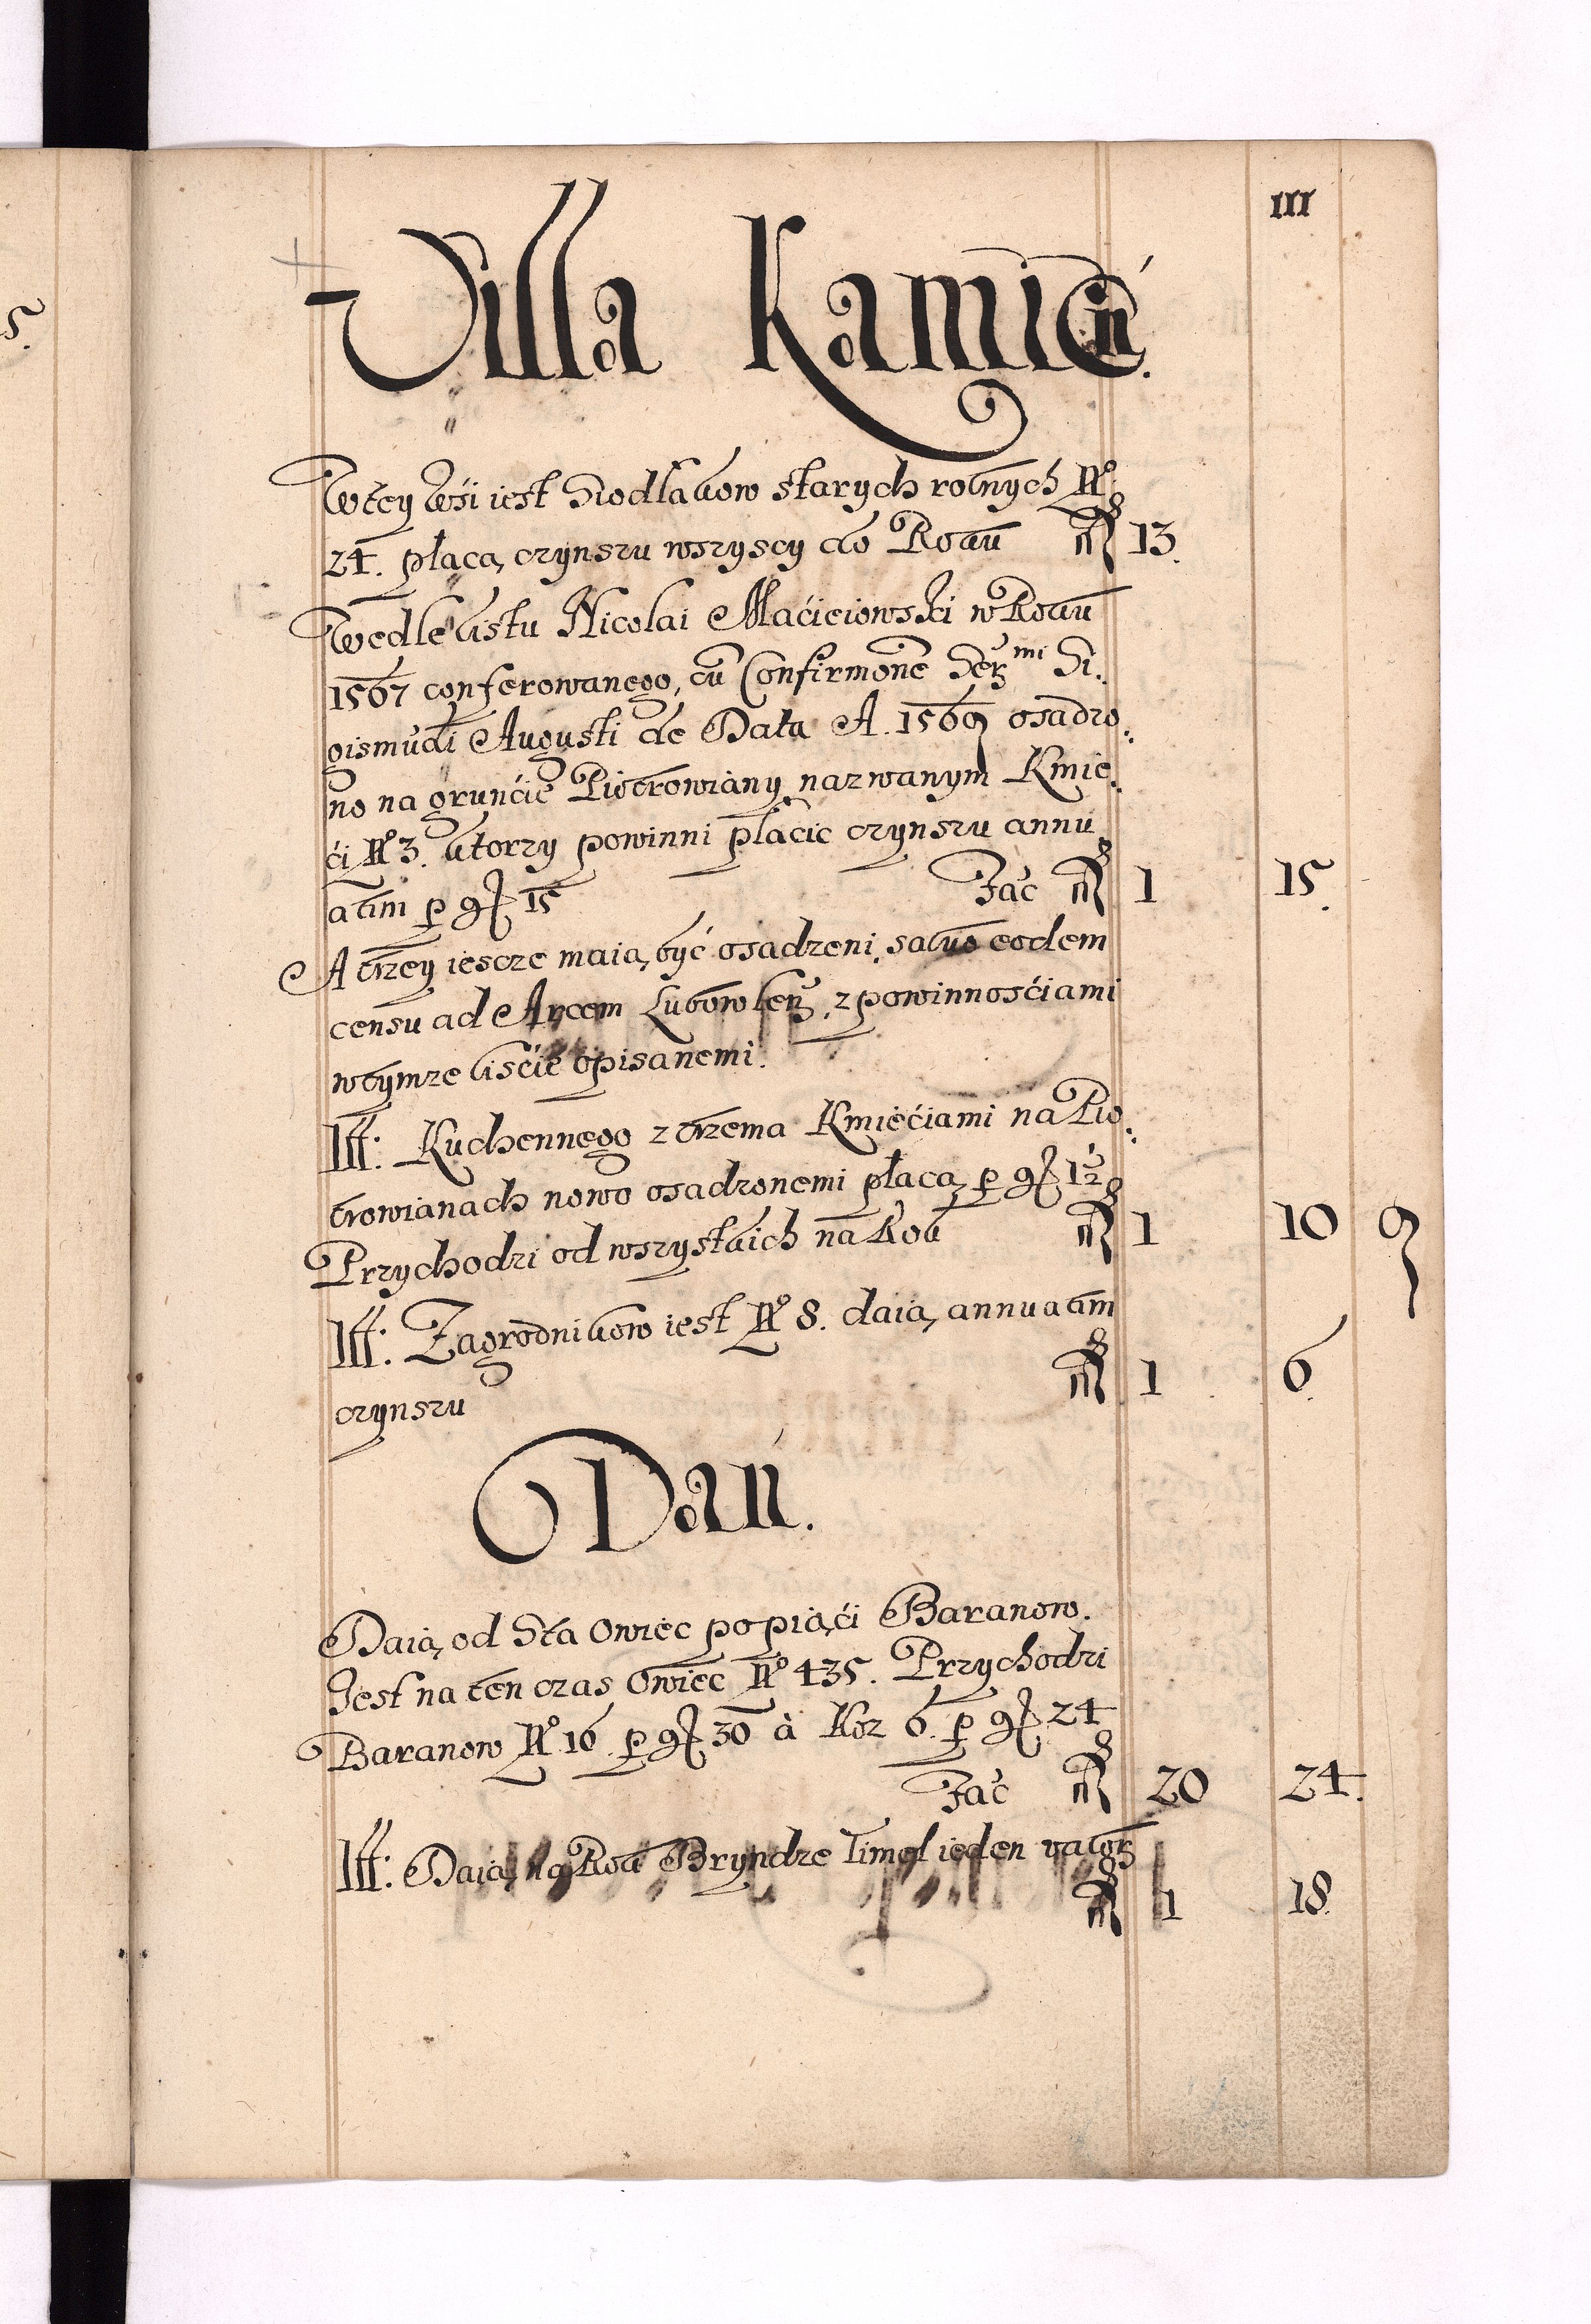 111
Villa Kamień.
W tey wsi iest Siodlakow starych rolnych No
24. płacą czynszu wszyscy do Roku fl 13.
Wedle listu Nicolai Maćieiowski w Roku
1567 conferowanego, cū Confirmone Ser mi Si:
gismūdi Augusti de Data A. 1569 osadzo:
no na grunćie Piotrowiany nazwanym Kmie:
ći No 3. ktorzy powinni płacic czynszu annu
atim p gr 15 Fać fl 1 15.
A trzey iescze maią być osadzeni, saluo eodem
censu ad Arcem Lubowlen, z powinnosćiami
w tymze lisćie opisanemi.
Itt: Kuchennego z trzema Kmiećiami na Pio:
trowianach nowo osadzonemi płacą p gr 1½
Przychodzi od wszystkich na Rok fl 1 10 9
Itt: Zagrodnikow iest No 8. daią annuatim
czynszu fl 1 6.
Dań.
Daią od Sta Owiec po piąći Baranow.
Jest na ten czas Owiec No 435. Przychodzi
Baranow No 16 p gr 30 à Koz 6. p gr 24
Fać fl 20 24.
Itt: Daią na Rok Bryndze Limel ieden valor
fl 1 18.